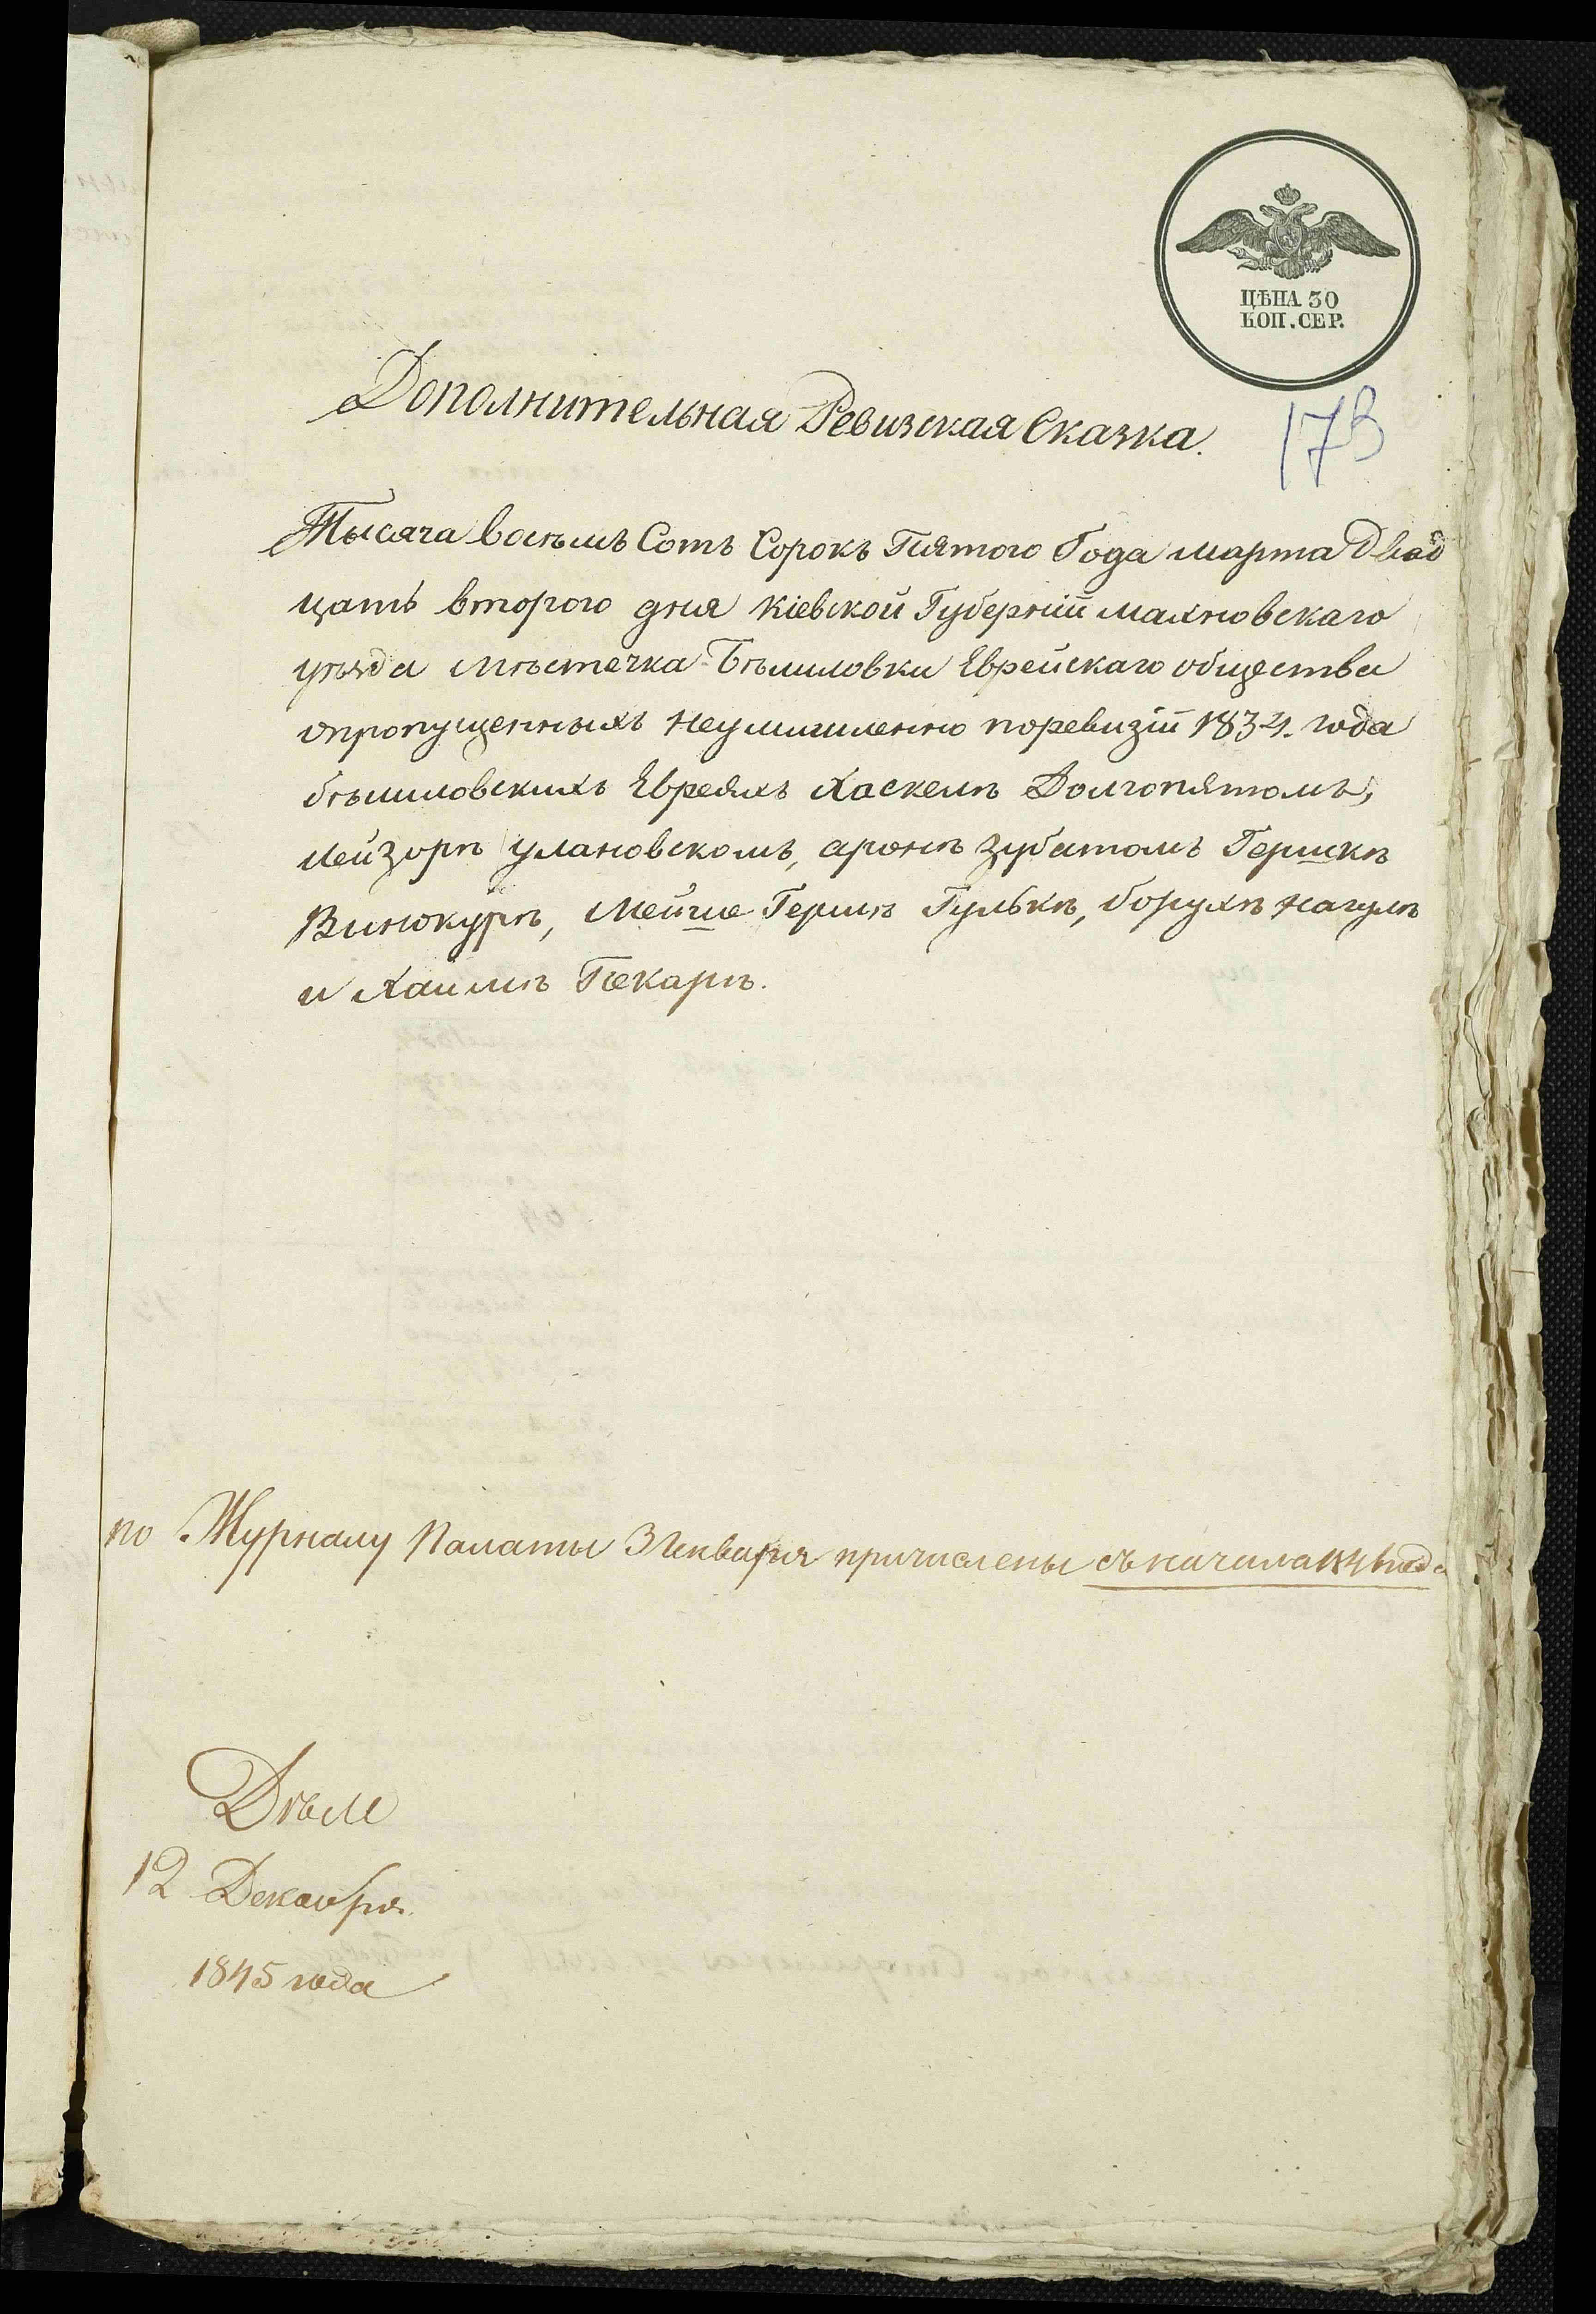 ЦѢНА 30
КОП. СЕР.
Дополнительная Ревизская Сказка.
173
Тысяча восемь Сотъ Сорокъ Пятого Года марта Двад
цать второго дня Кіевской Губерніи Махновскаго
уѣзда мѣстечка Бѣлиловки Еврейскаго общества
опропущенныхъ неумышленно поревизіи 1834. года
бѣлиловскихъ Евреяхъ Хаскелѣ Долгопятомъ,
Лейзорѣ улановскомъ, аронѣ зубатомъ Гершкѣ
Винокурѣ, Мейше Гершѣ Гулькѣ, борухѣ Нагулѣ
и Хаимѣ Пекарѣ.
по Журналу Палаты 3 Генваря причислены съ начала года
12 Декабря
1845 года